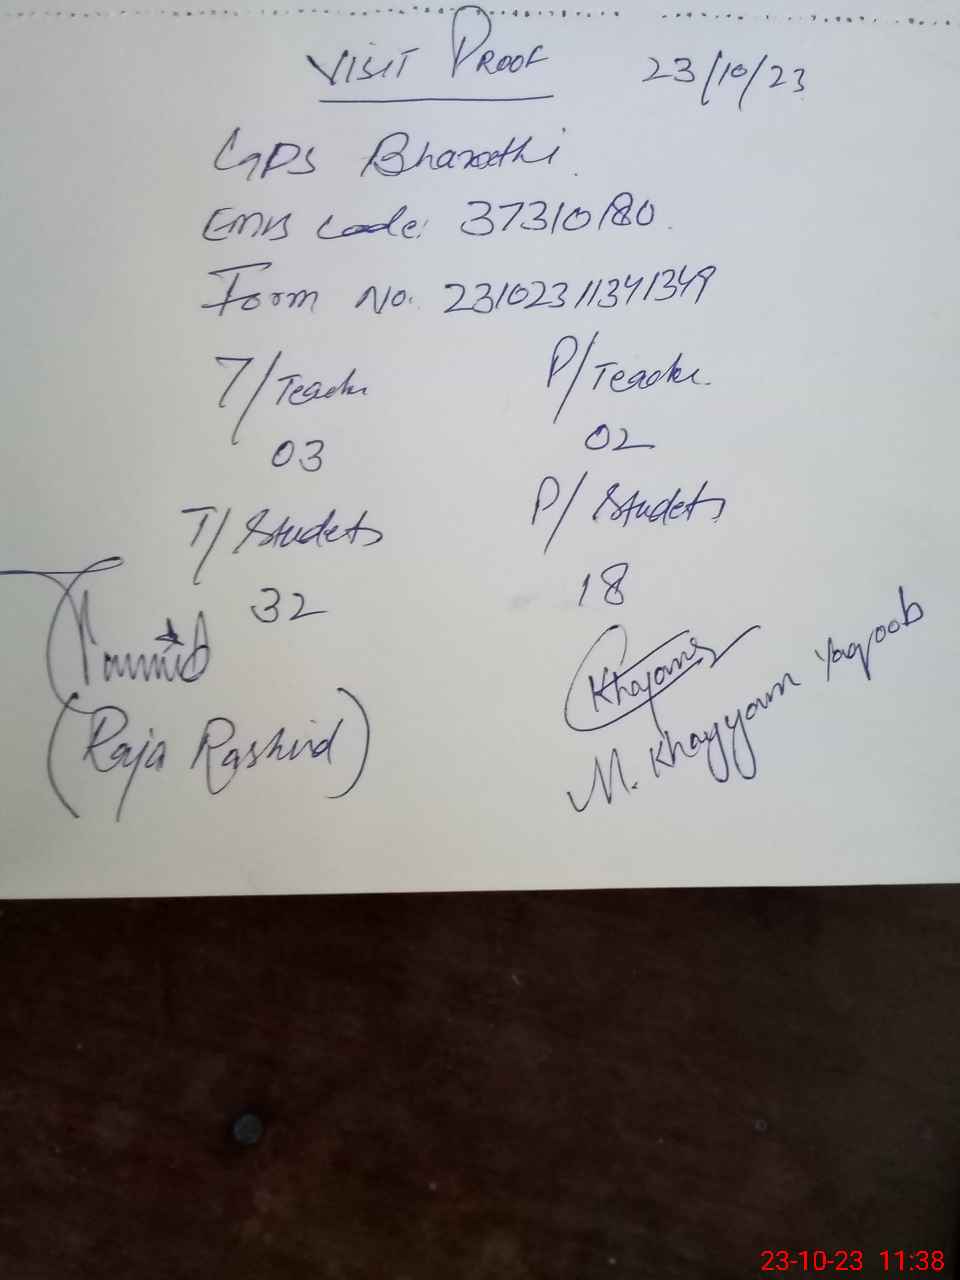 VISIT PROOF 23/10/23
GPS Bharathi
EMIS Code: 37310180
Form No. 23102311341349
T/Teache P/Teache
03 02
T/Studets P/Studets
32 18
Khayam
(Raja Rashid) M. Khayyam Yaqoob
23-10-23 11:38